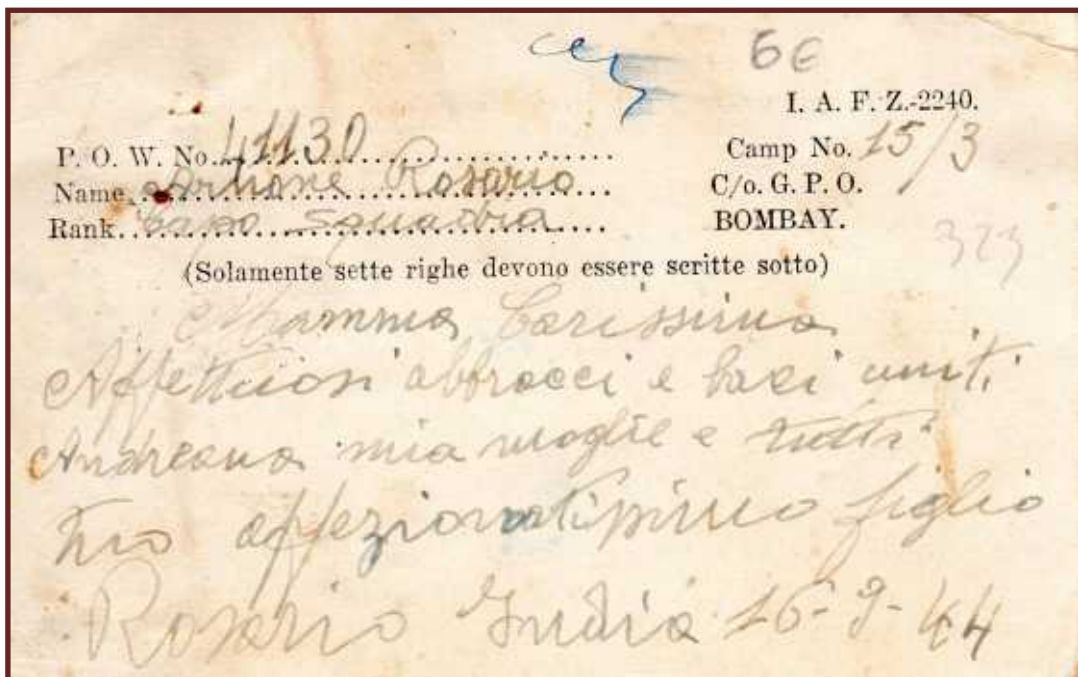 6€
I. A. F. Z.-2240.
P. O. W. No. 41130
Camp No. 15/3
Name Rosario
C/o. G. P. O.
Rank Capo Squadra
BOMBAY.
323
(Solamente sette righe devono essere scritte sotto)
Mamma Carissima
Affettuosi abbracci e baci uniti
Andreana mia moglie e tutti
tuo affezionatissimo figlio
Rosario India 16-9-44